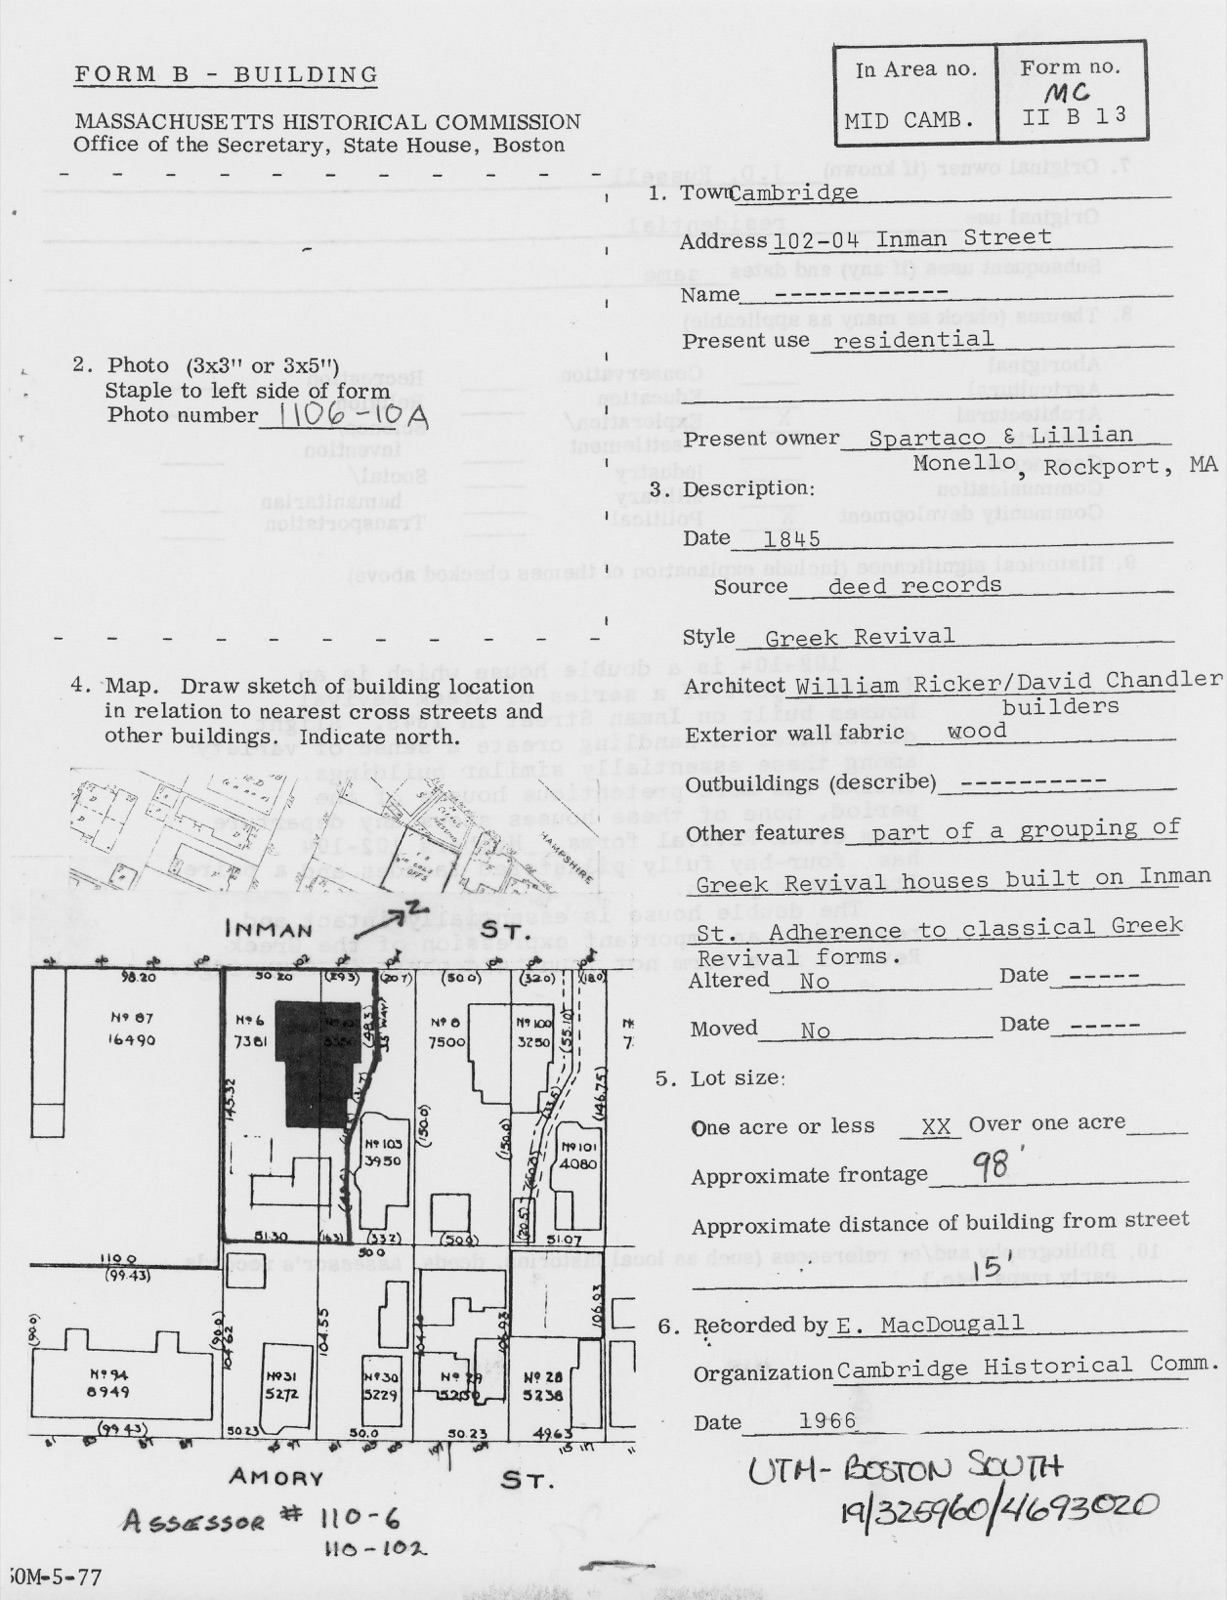 FORM B - BUILDING
In Area no.
MID CAMB.
Form no.
MC
II B 13
MASSACHUSETTS HISTORICAL COMMISSION
Office of the Secretary, State House, Boston
1. Town Cambridge
Address 102-04 Inman Street
Name -------------
Present use residential
Present owner Spartaco & Lillian
Monello, Rockport, MA
2. Photo (3x3" or 3x5")
Staple to left side of form
Photo number 1106-10A
3. Description:
Date 1845
Source deed records
Style Greek Revival
Architect William Ricker/David Chandler
builders
Exterior wall fabric wood
Outbuildings (describe) -----------
Other features part of a grouping of
Greek Revival houses built on Inman
St. Adherence to classical Greek
Revival forms.
Altered No Date -----
Moved No Date -----
4. Map. Draw sketch of building location
in relation to nearest cross streets and
other buildings. Indicate north.
HAMPSHIRE
INMAN ST.
N
98.20 50.20 (29.3) (20.7) (50.0) (32.0) (18.0)
Nº 87
16490
Nº 6
7381
Nº 8
7500
Nº 100
3250
145.32
(150.0)
(150.0)
(55.10)
(146.75)
Nº 103
3950
Nº 101
4080
51.30 (16.3) (33.2) (50.0) 51.07
50.0
110.0
(99.43)
(90.0)
(90.0)
104.62
104.55
106.93
106.03
Nº 94
8949
Nº 31
5272
Nº 30
5229
Nº 29
5250
Nº 28
5238
(99.43) 50.23 50.0 50.23 49.63
AMORY ST.
ASSESSOR # 110-6
110-102
5. Lot size:
One acre or less XX Over one acre
Approximate frontage 98'
Approximate distance of building from street
15'
6. Recorded by E. MacDougall
Organization Cambridge Historical Comm.
Date 1966
UTM- BOSTON SOUTH
19/325960/4693020
50M-5-77